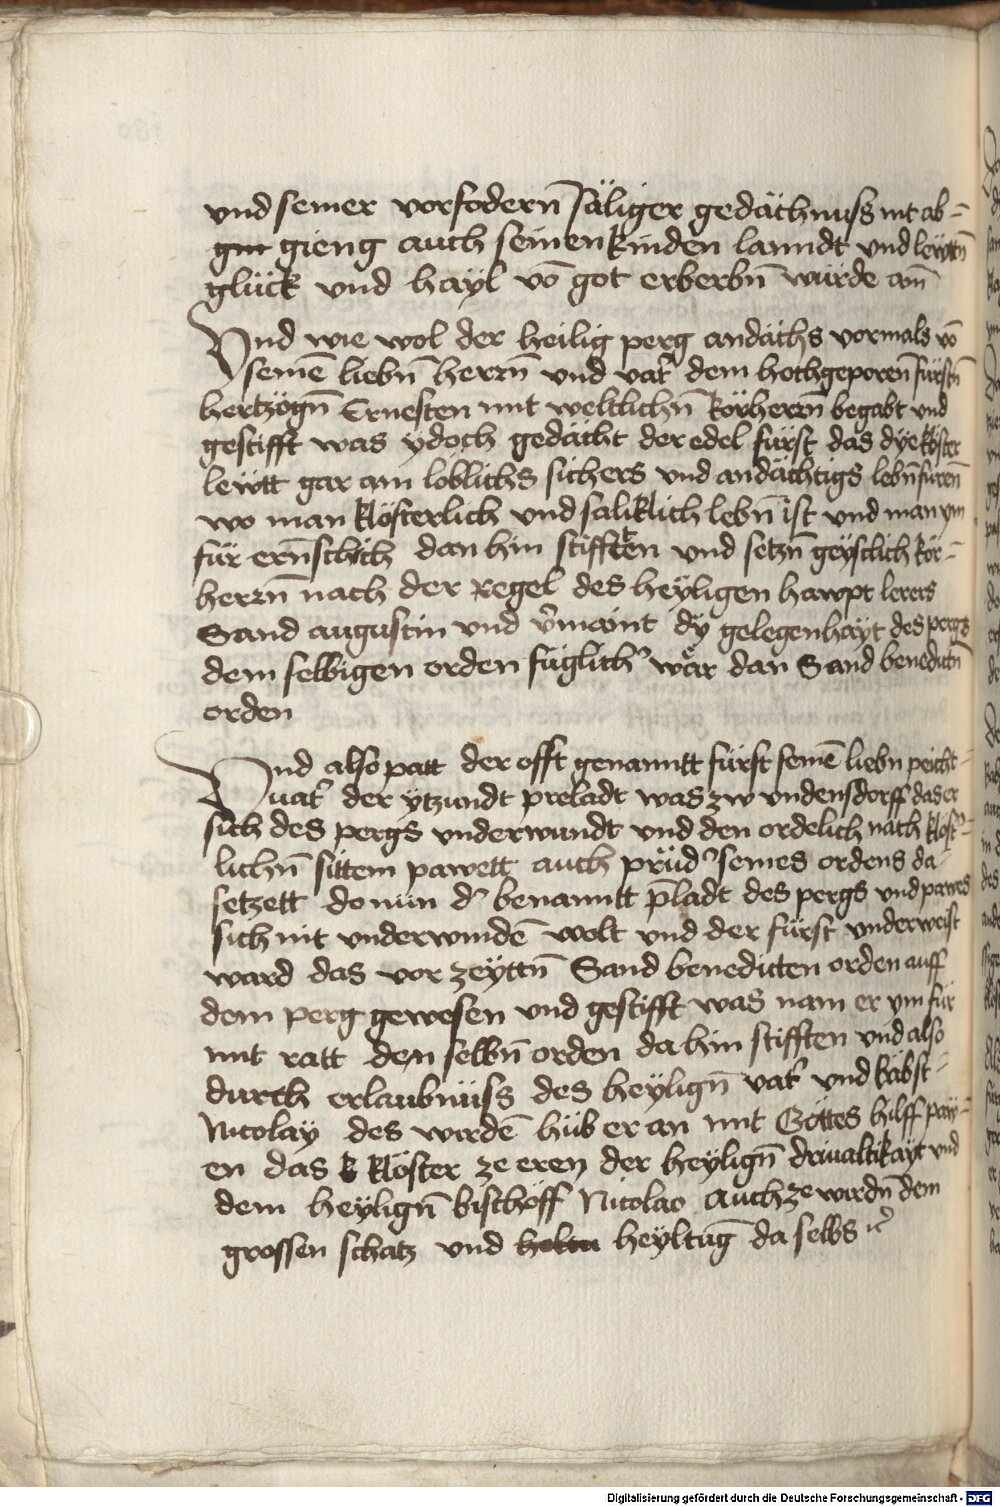 vnd seiner vorfodern̄ säliger gedächnuss nit ab-
gin gieng auch seinen kinden lanndt vnd leẅtn̄
glück vnd hayl vō got erberbn̄ würde am̄
Vnd wie wol der heilig perg andächs vormals vō
seinē liebn̄ herrn̄ vnd vatr̄ dem hochgeporen̄ fürstn̄
hertzögn̄ Ernesten mit weltlichn̄ körherrn̄ begabt vnd
gestifft was ydoch gedächt der edel fürst das dye kloster
leẅtt gar ain loblichs sichers vnd andächtigs lebn̄ füren̄
wo man klösterlich vnd saliklich lebn̄ ist vnd man ym
für ern̄schlich dan hin stifften vnd setzn̄ geystlich kör-
herrn̄ nach der Regel des heyligen hawpt lerers
Sand augustin vnd v̄maint dÿ gelegenhayt des pergs
dem selbigen orden füglich' wär dan Sand benedictn̄
orden
Vnd also patt der offt genanntt fürst seinē liebn peicht-
uatr̄ der ytzundt preladt was zw vndensdorff das er
sich des pergs vnderwundt vnd den ordelich nach klost'-
lichn̄ sittem pawett auch prüd' seines ordens da-
setzett do nun d' benanntt p̄ladt des pergs vnd pawes
sich nit vnderwindē wolt vnd der fürst vnderweist
ward das vor zeyttn̄ Sand benedicten orden auff
dem perg gewesen vnd gestifft was nam er ym für
mit ratt den selbn̄ orden da hin stifften vnd also
durch erlaubnüss des heylign̄ vatr̄ vnd bäbst-
Nicolaÿ des virdē hüb er an mit Göttes hilff paw-
en das k klöster ze eren der heylign̄ driualtikayt vnd
dem heylign̄ bischöff Nicolao auch ze wirdn̄ dem
grossen schatz vnd heyltūg da selbs ꝛc̄
Digitalisierung gefördert durch die Deutsche Forschungsgemeinschaft - DFG